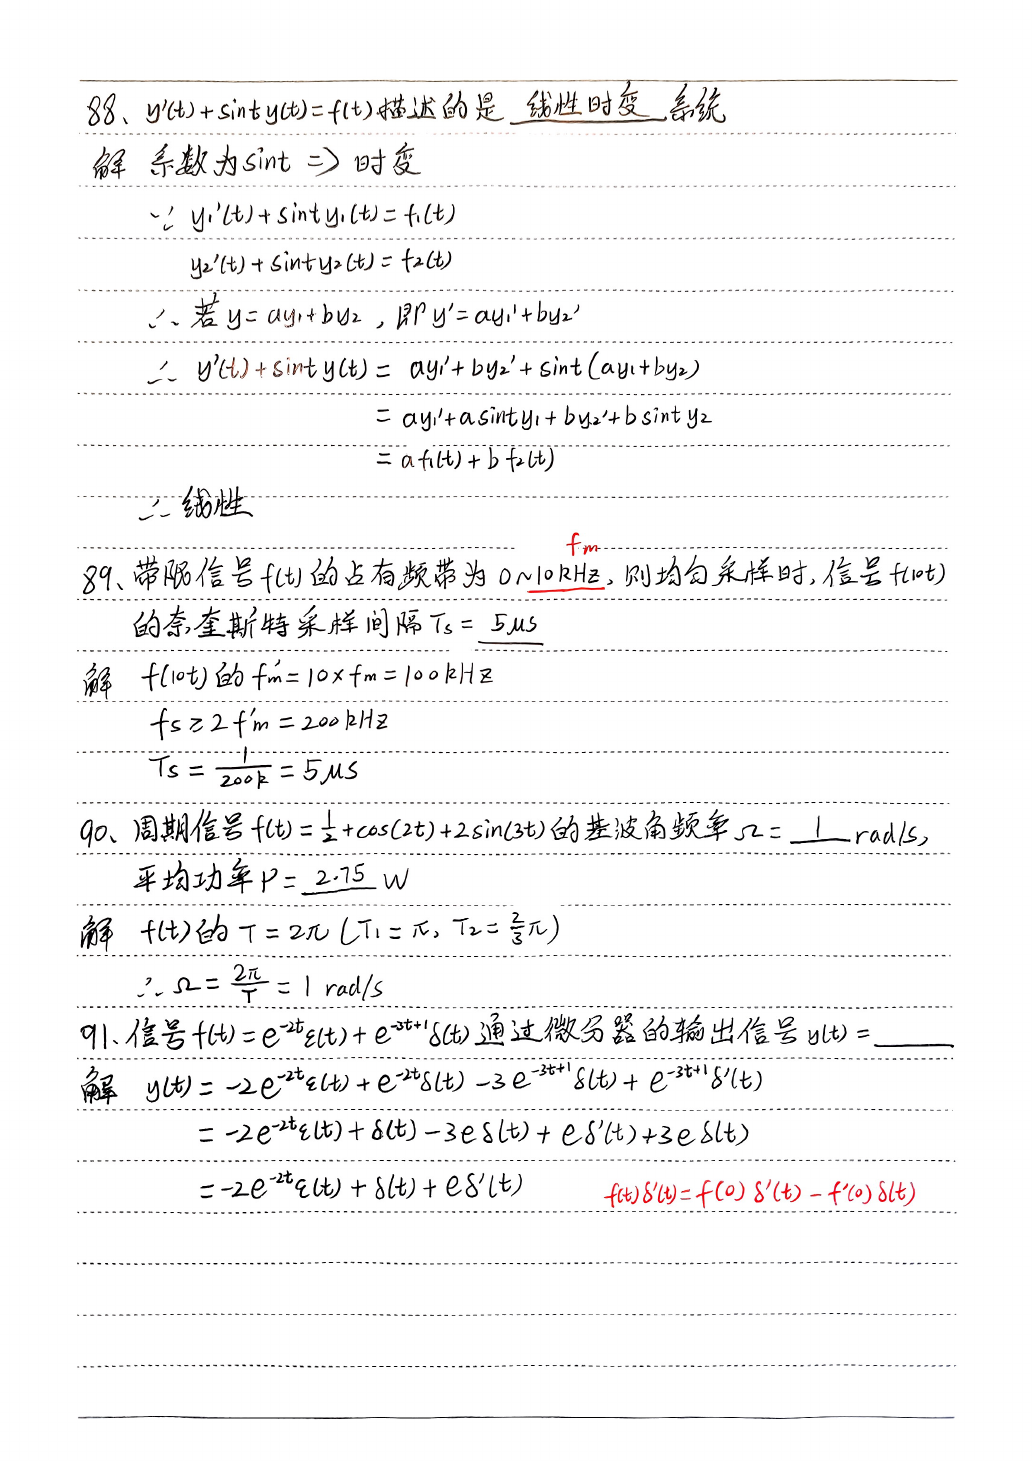 88、y'(t)+sint y(t)=f(t)描述的是 线性时变 系统
解 系数为sint => 时变
∵ y₁'(t)+sint y₁(t)=f₁(t)
y₂'(t)+sint y₂(t)=f₂(t)
∴ 若y=ay₁+by₂，即y'=ay₁'+by₂'
∴ y'(t)+sint y(t)= ay₁'+by₂'+sint(ay₁+by₂)
= ay₁'+asinty₁+by₂'+bsinty₂
= af₁(t)+bf₂(t)
∴ 线性
fm
89、带限信号f(t)的占有频带为0~10kHz，则均匀采样时，信号f(10t)
的奈奎斯特采样间隔Ts= 5μs
解 f(10t)的fm'=10×fm=100kHz
fs≥2f'm=200kHz
Ts=1/200k=5μs
90、周期信号f(t)=1/2+cos(2t)+2sin(3t)的基波角频率Ω= 1 rad/s，
平均功率P= 2.75 W
解 f(t)的T=2π(T₁=π，T₂=2/3π)
∴ Ω=2π/T=1 rad/s
91、信号f(t)=e^{-2t}ε(t)+e^{-3t+1}δ(t)通过微分器的输出信号y(t)=____
解 y(t)=-2e^{-2t}ε(t)+e^{-2t}δ(t)-3e^{-3t+1}δ(t)+e^{-3t+1}δ'(t)
=-2e^{-2t}ε(t)+δ(t)-3eδ(t)+eδ'(t)+3eδ(t)
=-2e^{-2t}ε(t)+δ(t)+eδ'(t)
f(t)δ'(t)=f(0)δ'(t)-f'(0)δ(t)